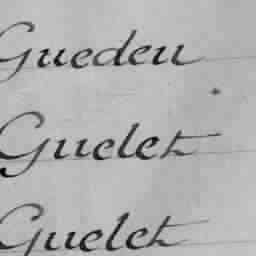 Guedeu
Guelet
Guelet